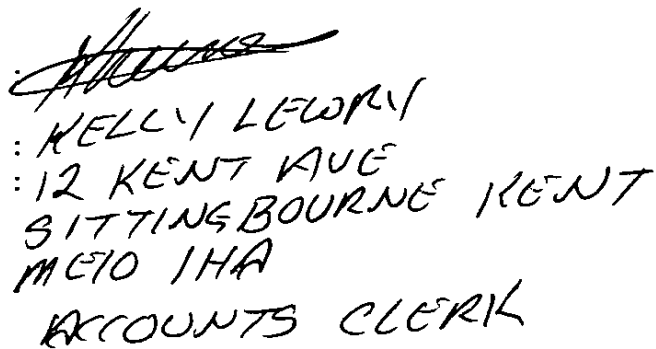 : KELLY LEWRY
: 12 KENT AVE
SITTINGBOURNE KENT
ME10 1HA
ACCOUNTS CLERK